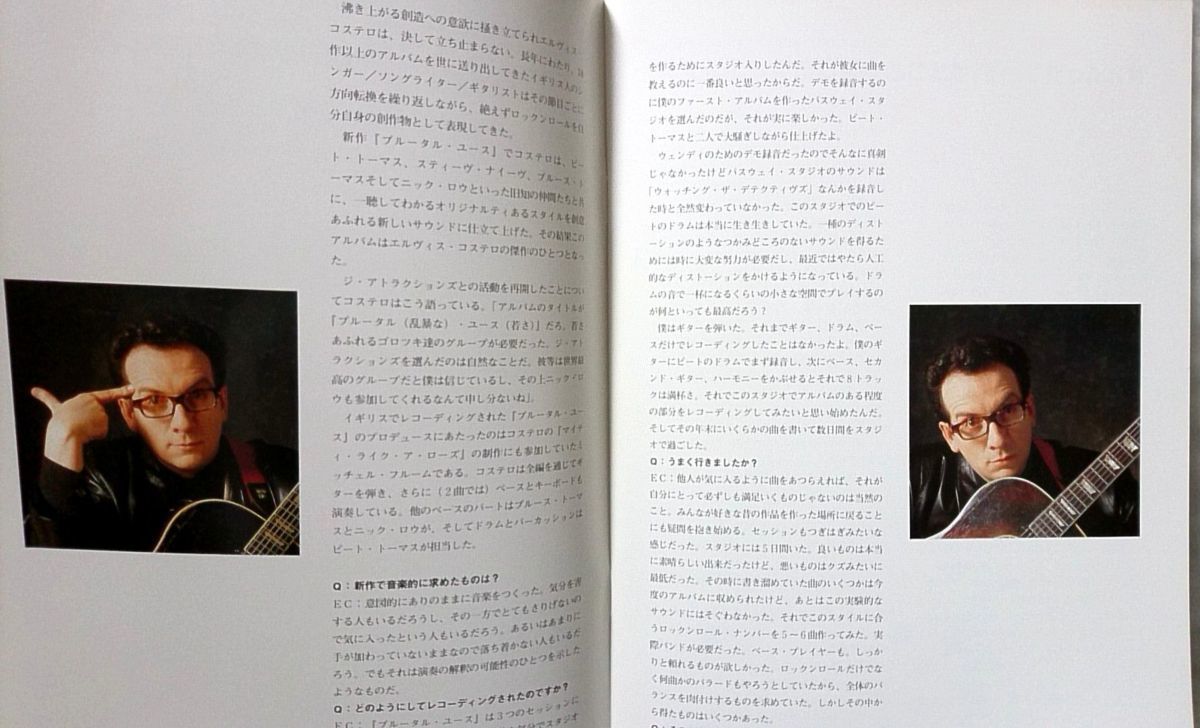 沸き上がる創造への意欲に掻き立てられエルヴィス・
コステロは、決して立ち止まらない。長年にわたり、
作以上のアルバムを世に送り出してきたイギリス人のシ
ンガー／ソングライター／ギタリストはその節目ごとに
方向転換を繰り返しながら、絶えずロックンロールを自
分自身の創作物として表現してきた。
新作『ブルータル・ユース』でコステロは、ピー
ト・トーマス、スティーヴ・ナイーヴ、ブルース・ト
ーマスそしてニック・ロウといった旧知の仲間たちと共
に、一聴してわかるオリジナルティあるスタイルを創意
あふれる新しいサウンドに仕立て上げた。その結果この
アルバムはエルヴィス・コステロの傑作のひとつとなっ
た。
ジ・アトラクションズとの活動を再開したことについ
てコステロはこう語っている。「アルバムのタイトルが
『ブルータル（乱暴な）・ユース（若さ）』だろ。若さ
あふれるゴロツキ達のグループが必要だった。ジ・アト
ラクションズを選んだのは自然なことだ。彼等は世界最
高のグループだと僕は信じているし、その上ニック・ロ
ウも参加してくれるなんて申し分ないね」。
イギリスでレコーディングされた『ブルータル・ユー
ス』のプロデュースにあたったのはコステロの『マイテ
ィ・ライク・ア・ローズ』の制作にも参加していたミ
ッチェル・フルームである。コステロは全編を通じてギ
ターを弾き、さらに（2曲では）ベースとキーボードも
演奏している。他のベースのパートはブルース・トーマ
スとニック・ロウが、そしてドラムとパーカッションは
ピート・トーマスが担当した。
Q：新作で音楽的に求めたものは？
EC：意図的にありのままに音楽をつくった。気分を害
する人もいるだろうし、その一方でとてもさりげないの
で気に入ったという人もいるだろう。あるいはあまりに
手が加わっていないままなので落ち着かない人もいるだ
ろう。でもそれは演奏の解釈の可能性のひとつを示した
ようなものだ。
Q：どのようにしてレコーディングされたのですか？
EC：『ブルータル・ユース』は3つのセッションに
を作るためにスタジオ入りしたんだ。それが彼女に曲を
教えるのに一番良いと思ったからだ。デモを録音するの
に僕のファースト・アルバムを作ったパスウェイ・スタ
ジオを選んだのだが、それが実に楽しかった。ピート・
トーマスと二人で大騒ぎしながら仕上げたよ。
ウェンディのためのデモ録音だったのでそんなに真剣
じゃなかったけどパスウェイ・スタジオのサウンドは
「ウォッチング・ザ・デテクティヴズ」なんかを録音し
た時と全然変わっていなかった。このスタジオでのピー
トのドラムは本当に生き生きしていた。一種のディスト
ーションのようなつかみどころのないサウンドを得るた
めには時に大変な努力が必要だし、最近ではやたら人工
的なディストーションをかけるようになっている。ドラ
ムの音で一杯になるくらいの小さな空間でプレイするの
が何といっても最高だろう？
僕はギターを弾いた。それまでギター、ドラム、ベー
スだけでレコーディングしたことはなかったよ。僕のギ
ターにピートのドラムでまず録音し、次にベース、セカ
ンド・ギター、ハーモニーをかぶせるとそれで8トラッ
クは満杯さ。それでこのスタジオでアルバムのある程度
の部分をレコーディングしてみたいと思い始めたんだ。
そしてその年末にいくらかの曲を書いて数日間をスタジ
オで過ごした。
Q：うまく行きましたか？
EC：他人が気に入るように曲をあつらえれば、それが
自分にとって必ずしも満足いくものじゃないのは当然の
こと。みんなが好きな昔の作品を作った場所に戻ること
にも疑問を抱き始める。セッションもつぎはぎみたいな
感じだった。スタジオには5日間いた。良いものは本当
に素晴らしい出来だったけど、悪いものはクズみたいに
最低だった。その時に書き溜めていた曲のいくつかは今
度のアルバムに収められたけど、あとはこの実験的な
サウンドにはそぐわなかった。それでこのスタイルに合
うロックンロール・ナンバーを5～6曲作ってみた。実
際バンドが必要だった。ベース・プレイヤーも。しっか
りと頼れるものが欲しかった。ロックンロールだけでな
く何曲かのバラードもやろうとしていたから、全体のバ
ランスを肉付けするものを求めていた。しかしその中か
ら得たものはいくつかあった。